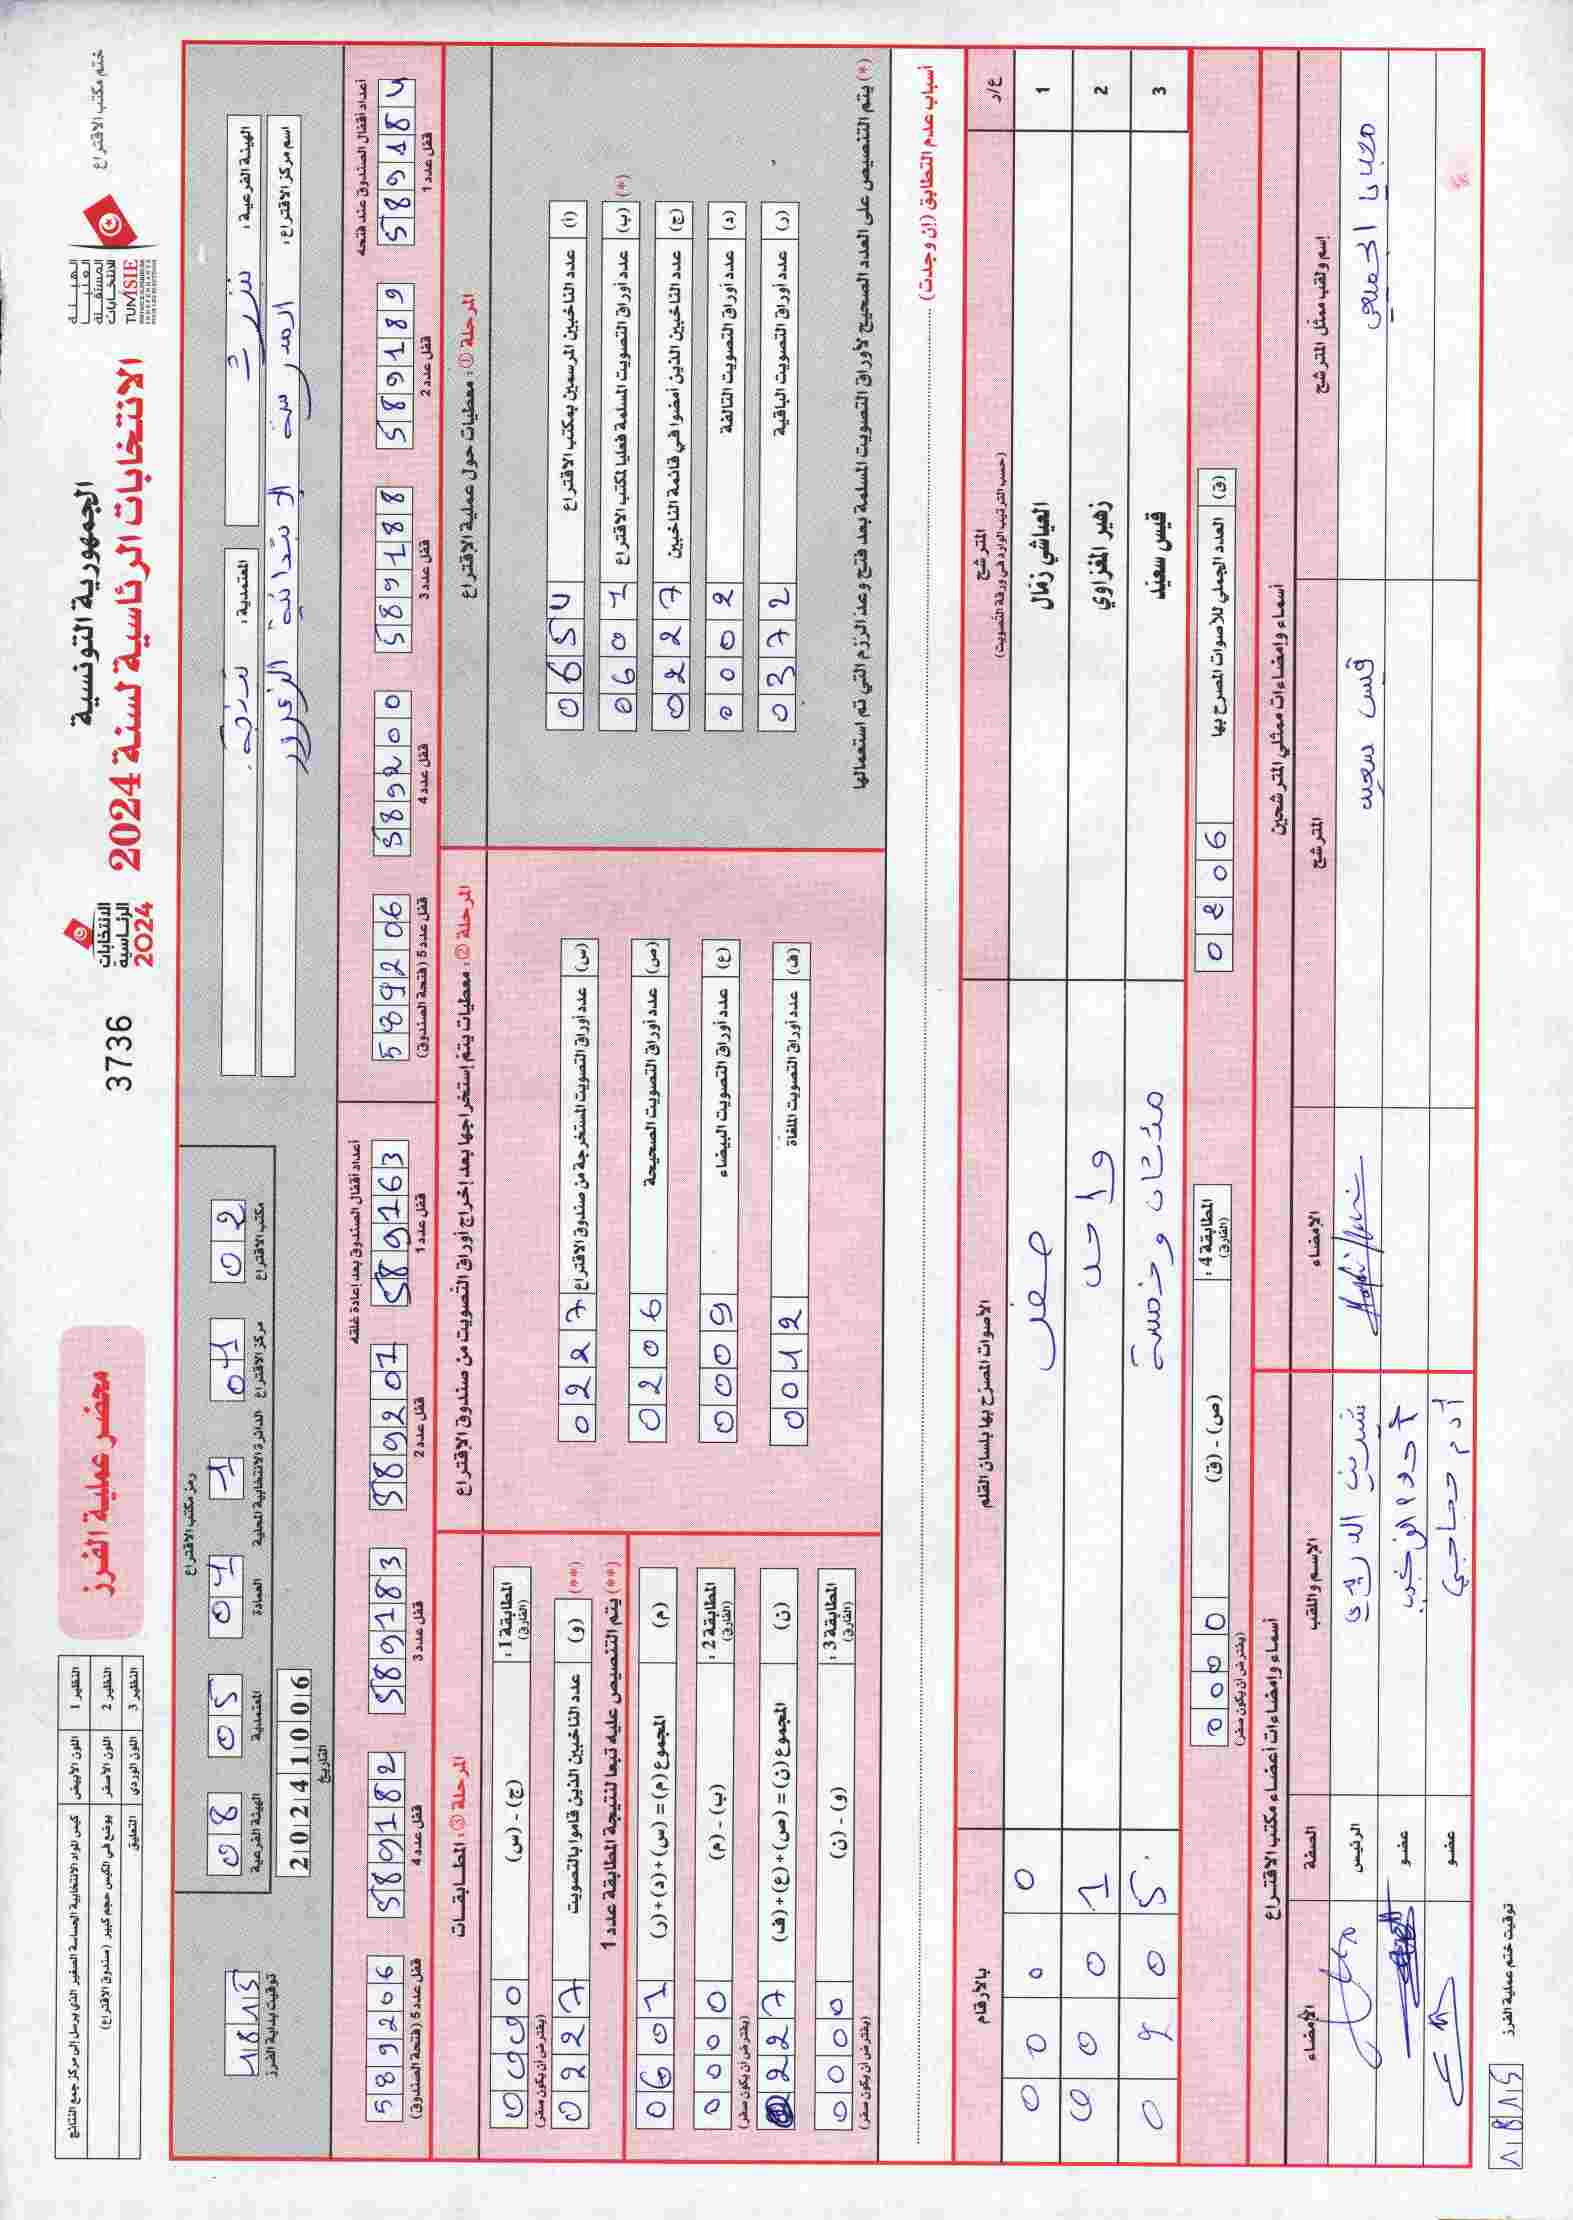 الجمهورية التونسية
الانتخابات الرئاسية لسنة 2024
الهيئة العليا المستقلة للانتخابات
TUNISIE
ختم مكتب الاقتراع
الانتخابات الرئاسية 2024
3736
محضر عملية الفرز
النظير 1 اللون الأبيض كيس المواد الانتخابية الحساسة الصغير الذي يرسل إلى مركز جمع النتائج
النظير 2 اللون الأصفر يوضع في الكيس حجم كبير (صندوق الاقتراع)
النظير 3 اللون الوردي التعليق
الهيئة الفرعية: بنزرت
المعتمدية:
اسم مركز الاقتراع: المدرسة الابتدائية
رمز مكتب الاقتراع
مكتب الاقتراع 02
مركز الاقتراع 041
الدائرة الانتخابية المحلية 1
العمادة 04
المعتمدية 05
الهيئة الفرعية 08
التاريخ 20241006
توقيت بداية الفرز 1815
أعداد أقفال الصندوق عند فتحه
قفل عدد 1 589184
قفل عدد 2 589189
قفل عدد 3 589188
قفل عدد 4 589200
قفل عدد 5 (فتحة الصندوق) 589206
أعداد أقفال الصندوق بعد إعادة غلقه
قفل عدد 1 589163
قفل عدد 2 589201
قفل عدد 3 589183
قفل عدد 4 589182
قفل عدد 5 (فتحة الصندوق) 589206
المرحلة ①: معطيات حول عملية الاقتراع
(أ) عدد الناخبين المرسمين بمكتب الاقتراع 0654
(ب) عدد أوراق التصويت المسلمة فعليا لمكتب الاقتراع 0601 (*)
(ج) عدد الناخبين الذين أمضوا في قائمة الناخبين 0227
(د) عدد أوراق التصويت التالفة 0002
(ر) عدد أوراق التصويت الباقية 0372
(*) يتم التنصيص على العدد الصحيح لأوراق التصويت المسلمة بعد فتح وعد الرزم التي تم استعمالها
المرحلة ②: معطيات يتم إستخراجها بعد إخراج أوراق التصويت من صندوق الاقتراع
(س) عدد أوراق التصويت المستخرجة من صندوق الاقتراع 0227
(ص) عدد أوراق التصويت الصحيحة 0206
(ع) عدد أوراق التصويت البيضاء 0009
(ف) عدد أوراق التصويت الملغاة 0012
المرحلة ③: المطابقات
المطابقة 1: (الفارق) (ج) - (س) 0000 (يفترض أن يكون صفر)
(و) عدد الناخبين الذين قاموا بالتصويت 0227 (**)
(**) يتم التنصيص عليه تبعا لنتيجة المطابقة عدد 1
(م) المجموع (م) = (س) + (د) + (ر) 0601
المطابقة 2: (الفارق) (ب) - (م) 0000 (يفترض أن يكون صفر)
(ن) المجموع (ن) = (ص) + (ع) + (ف) 0227
المطابقة 3: (الفارق) (و) - (ن) 0000 (يفترض أن يكون صفر)
أسباب عدم التطابق (إن وجدت)
ع/د المترشح (حسب الترتيب الوارد في ورقة التصويت) الأصوات المصرح بها بلسان القلم بالأرقام
1 العياشي زمال صفر 0000
2 زهير المغزاوي واحد 0001
3 قيس سعيد مئتان وخمسة 0205
العدد الجملي للأصوات المصرح بها (ق) 0206
المطابقة 4: (الفارق) (ص) - (ق) 0000 (يفترض أن يكون صفر)
أسماء وإمضاءات ممثلي المترشحين
إسم ولقب ممثل المترشح المترشح الإمضاء
قيس سعيد
أسماء وإمضاءات أعضاء مكتب الاقتراع
الإسم واللقب الصفة الإمضاء
الرئيس
عضو
آدم حجاجي عضو
توقيت ختم عملية الفرز 1815